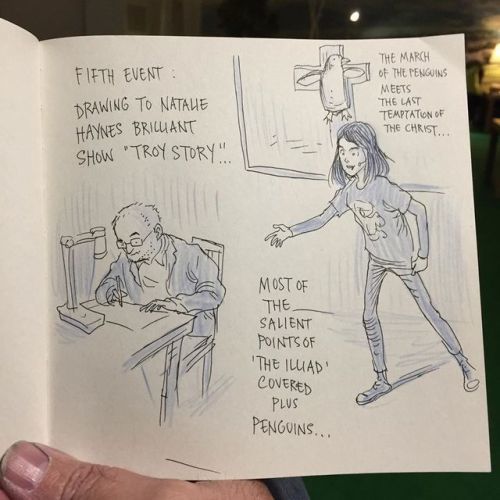 FIFTH EVENT :
DRAWING TO NATALIE
HAYNES BRILLIANT
SHOW "TROY STORY"...
THE MARCH
OF THE PENGUINS
MEETS
THE LAST
TEMPTATION OF
THE CHRIST...
MOST OF
THE
SALIENT
POINTS OF
'THE ILLIAD'
COVERED
PLUS
PENGUINS...